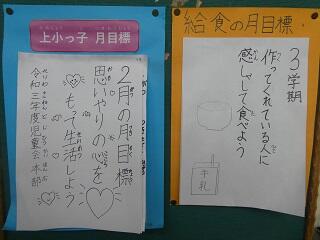 上小っ子 月目標
2月の月目標
思いやりの心を
もって生活しよう
令和三年度児童会本部
給食の月目標
3学期
作ってくれている人に
感しゃして食べよう
牛乳